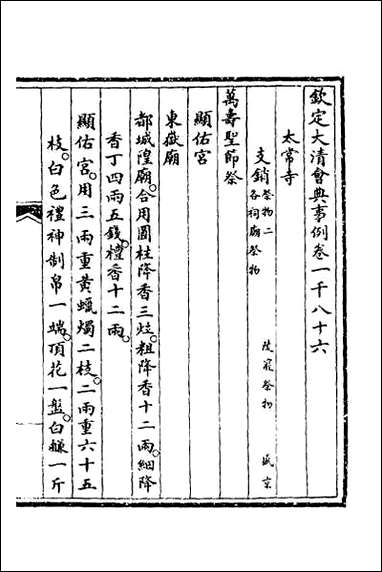 欽定大清會典事例卷一千八十六
太常寺
支銷祭物二 各祠廟祭物 陵寢祭物 盛京
萬壽聖節祭
顯佑宮
東嶽廟
都城隍廟合用圓柱降香三炷粗降香十二兩細降
香丁四兩五錢檀香十二兩
顯佑宮用三兩重黃蠟燭二枝二兩重六十五
枝白色禮神制帛一端頂花一盤白糠一斤